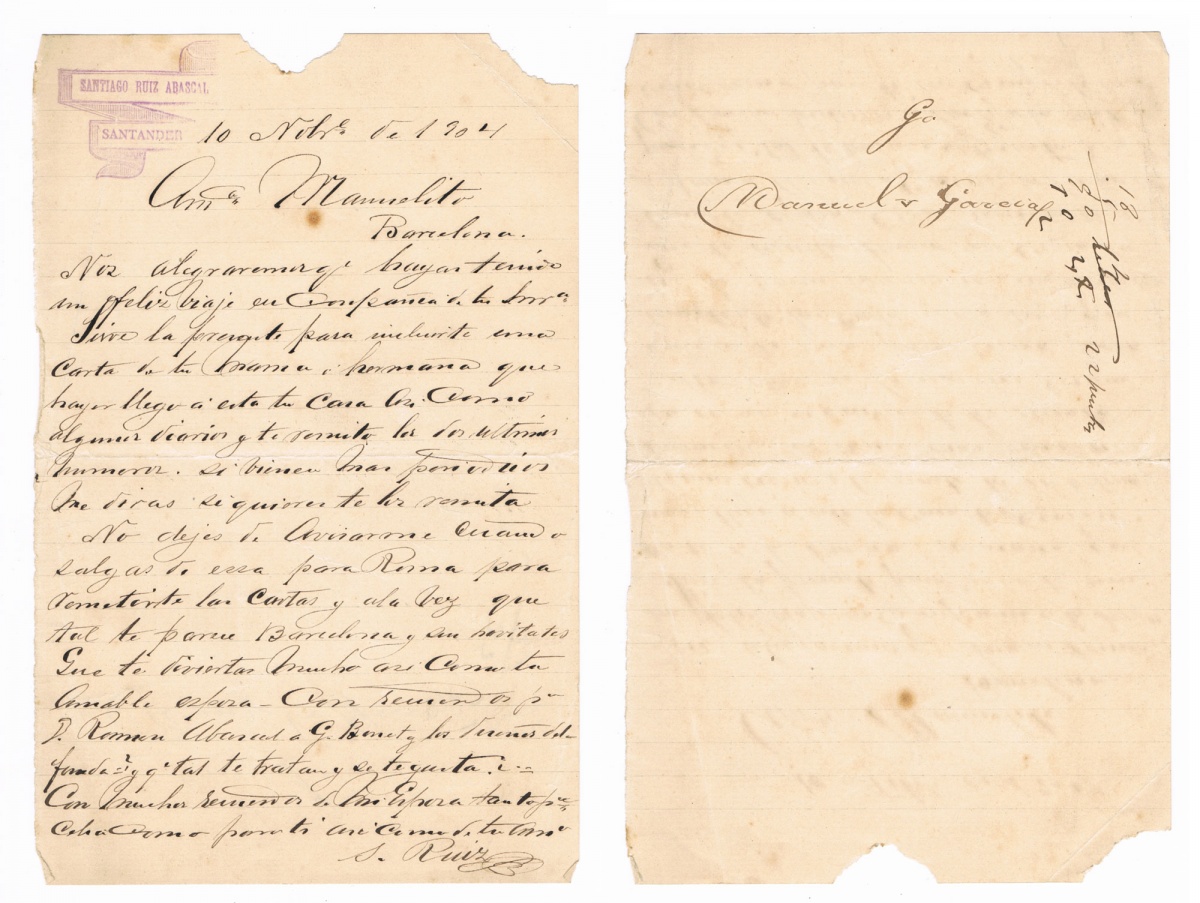 SANTIAGO RUIZ ABASCAL
SANTANDER
10 Nobre de 1904
Amo Manuelito
Barcelona.
Nos alegraremos qe hayas tenido
un feliz viaje en Compañia de tu
Sirve la presente para incluirte una
Carta de tu mama i hermana que
hayer llego á esta tu Casa Asi Como
algunos diarios y te remito los dos ultimos
numeros. si vienen mas periodicos
me diras si quieres te los remita
No dejes de Avisarme Cuando
salgas de essa para Roma para
remetirte las Cartas y ala vez que
tal te parece Barcelona y sus
Que te diviertas mucho asi Como tu
Amable espoza - Con recuerdos pa
D. Roman Abascal a G. Bonet y los dueños dela
fonda y qe tal te tratan y se te gusta
Con muchos recuerdos de mi Espoza tanto pa
Celia Como para ti asi como de tu Amo
S. Ruiz
Go
Manuel Garcia
18
5
90
10
2